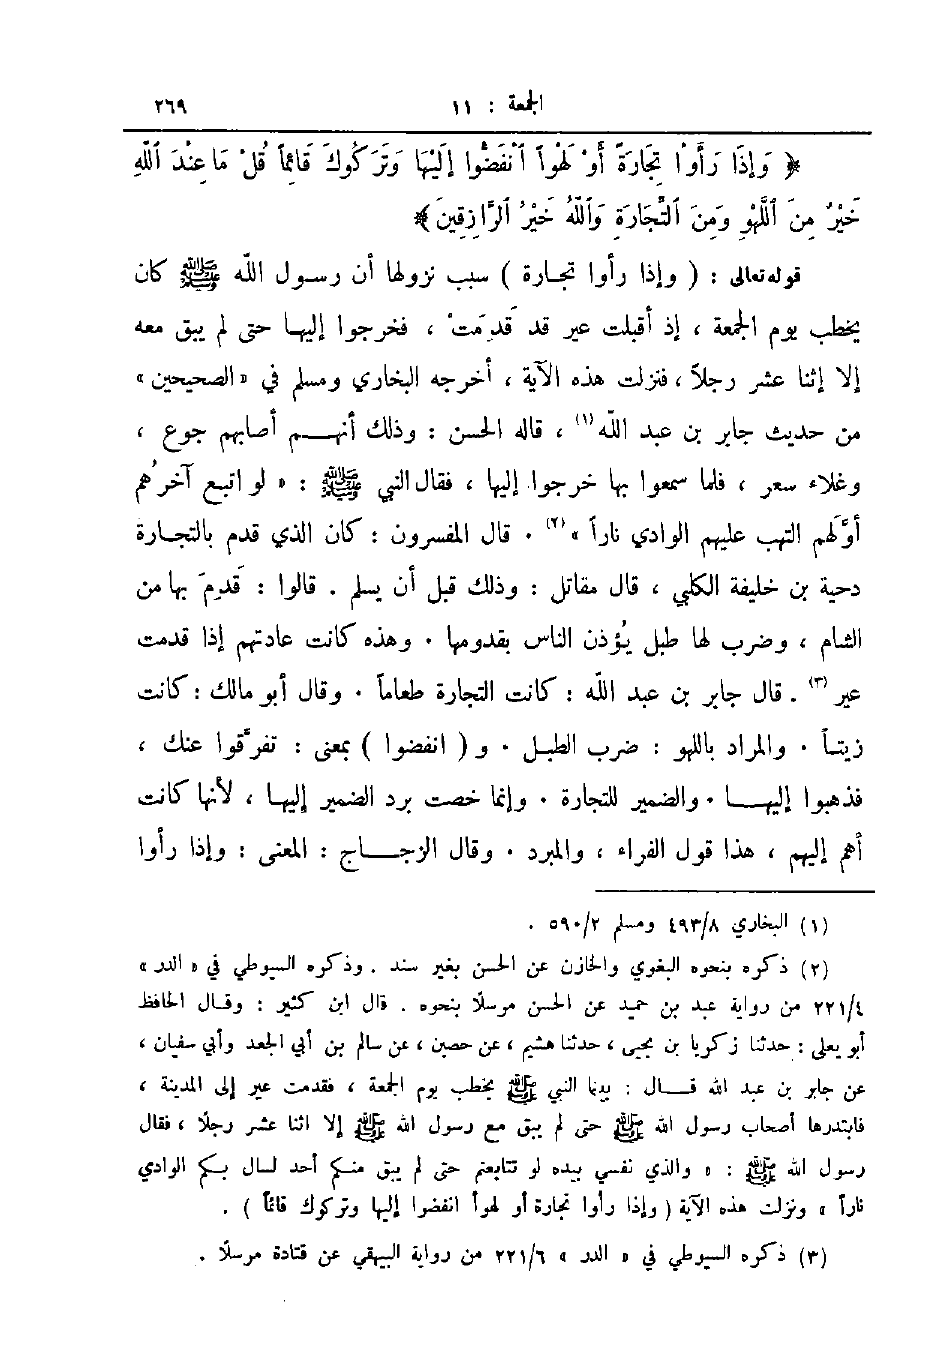 الجمعة : ١١ ٢٦٩
﴿ وَإِذَا رَأَوْا تِجَارَةً أَوْ لَهْواً ٱنْفَضُّوا إِلَيْهَا وَتَرَكُوكَ قَائِماً قُلْ مَا عِنْدَ ٱللّٰهِ
خَيْرٌ مِنَ ٱللَّهْوِ وَمِنَ ٱلتِّجَارَةِ وَٱللّٰهُ خَيْرُ ٱلرَّازِقِينَ ﴾
قوله تعالى : ( وإذا رأوا تجارة ) سبب نزولها أن رسول الله ﷺ كان
يخطب يوم الجمعة ، إذ أقبلت عير قد قَدِمَتْ ، فخرجوا إليها حتى لم يبق معه
إلا إثنا عشر رجلاً ، فنزلت هذه الآية ، أخرجه البخاري ومسلم في « الصحيحين »
من حديث جابر بن عبد الله (١) ، قاله الحسن : وذلك أنهم أصابهم جوع ،
وغلاء سعر ، فلما سمعوا بها خرجوا إليها ، فقال النبي ﷺ : « لو اتبع آخرُهم
أوَّلَهم التهب عليهم الوادي ناراً » (٢) . قال المفسرون : كان الذي قدم بالتجارة
دحية بن خليفة الكلبي ، قال مقاتل : وذلك قبل أن يسلم . قالوا : قَدِمَ بها من
الشام ، وضرب لها طبل يُؤذن الناس بقدومها . وهذه كانت عادتهم إذا قدمت
عير (٣) . قال جابر بن عبد الله : كانت التجارة طعاماً . وقال أبو مالك : كانت
زيتاً . والمراد باللهو : ضرب الطبل . و ( انفضوا ) بمعنى : تفرَّقوا عنك ،
فذهبوا إليها . والضمير للتجارة . وإنما خصت برد الضمير إليها ، لأنها كانت
أهم إليهم ، هذا قول الفراء ، والمبرد . وقال الزجاج : المعنى : وإذا رأوا
(١) البخاري ٤٩٣/٨ ومسلم ٥٩٠/٢ .
(٢) ذكره بنحوه البغوي والخازن عن الحسن بغير سند . وذكره السيوطي في « الدر »
٢٢١/٤ من رواية عبد بن حميد عن الحسن مرسلاً بنحوه . قال ابن كثير : وقال الحافظ
أبو يعلى : حدثنا زكريا بن يحيى ، حدثنا هشيم ، عن حصين ، عن سالم بن أبي الجعد وأبي سفيان ،
عن جابر بن عبد الله قال : بينا النبي ﷺ يخطب يوم الجمعة ، فقدمت عير إلى المدينة ،
فابتدرها أصحاب رسول الله ﷺ حتى لم يبق مع رسول الله ﷺ إلا اثنا عشر رجلاً ، فقال
رسول الله ﷺ : « والذي نفسي بيده لو تتابعتم حتى لم يبق منكم أحد لسال بكم الوادي
ناراً » ونزلت هذه الآية ( وإذا رأوا تجارة أو لهواً انفضوا إليها وتركوك قائماً ) .
(٣) ذكره السيوطي في « الدر » ٢٢١/٦ من رواية البيهقي عن قتادة مرسلاً .